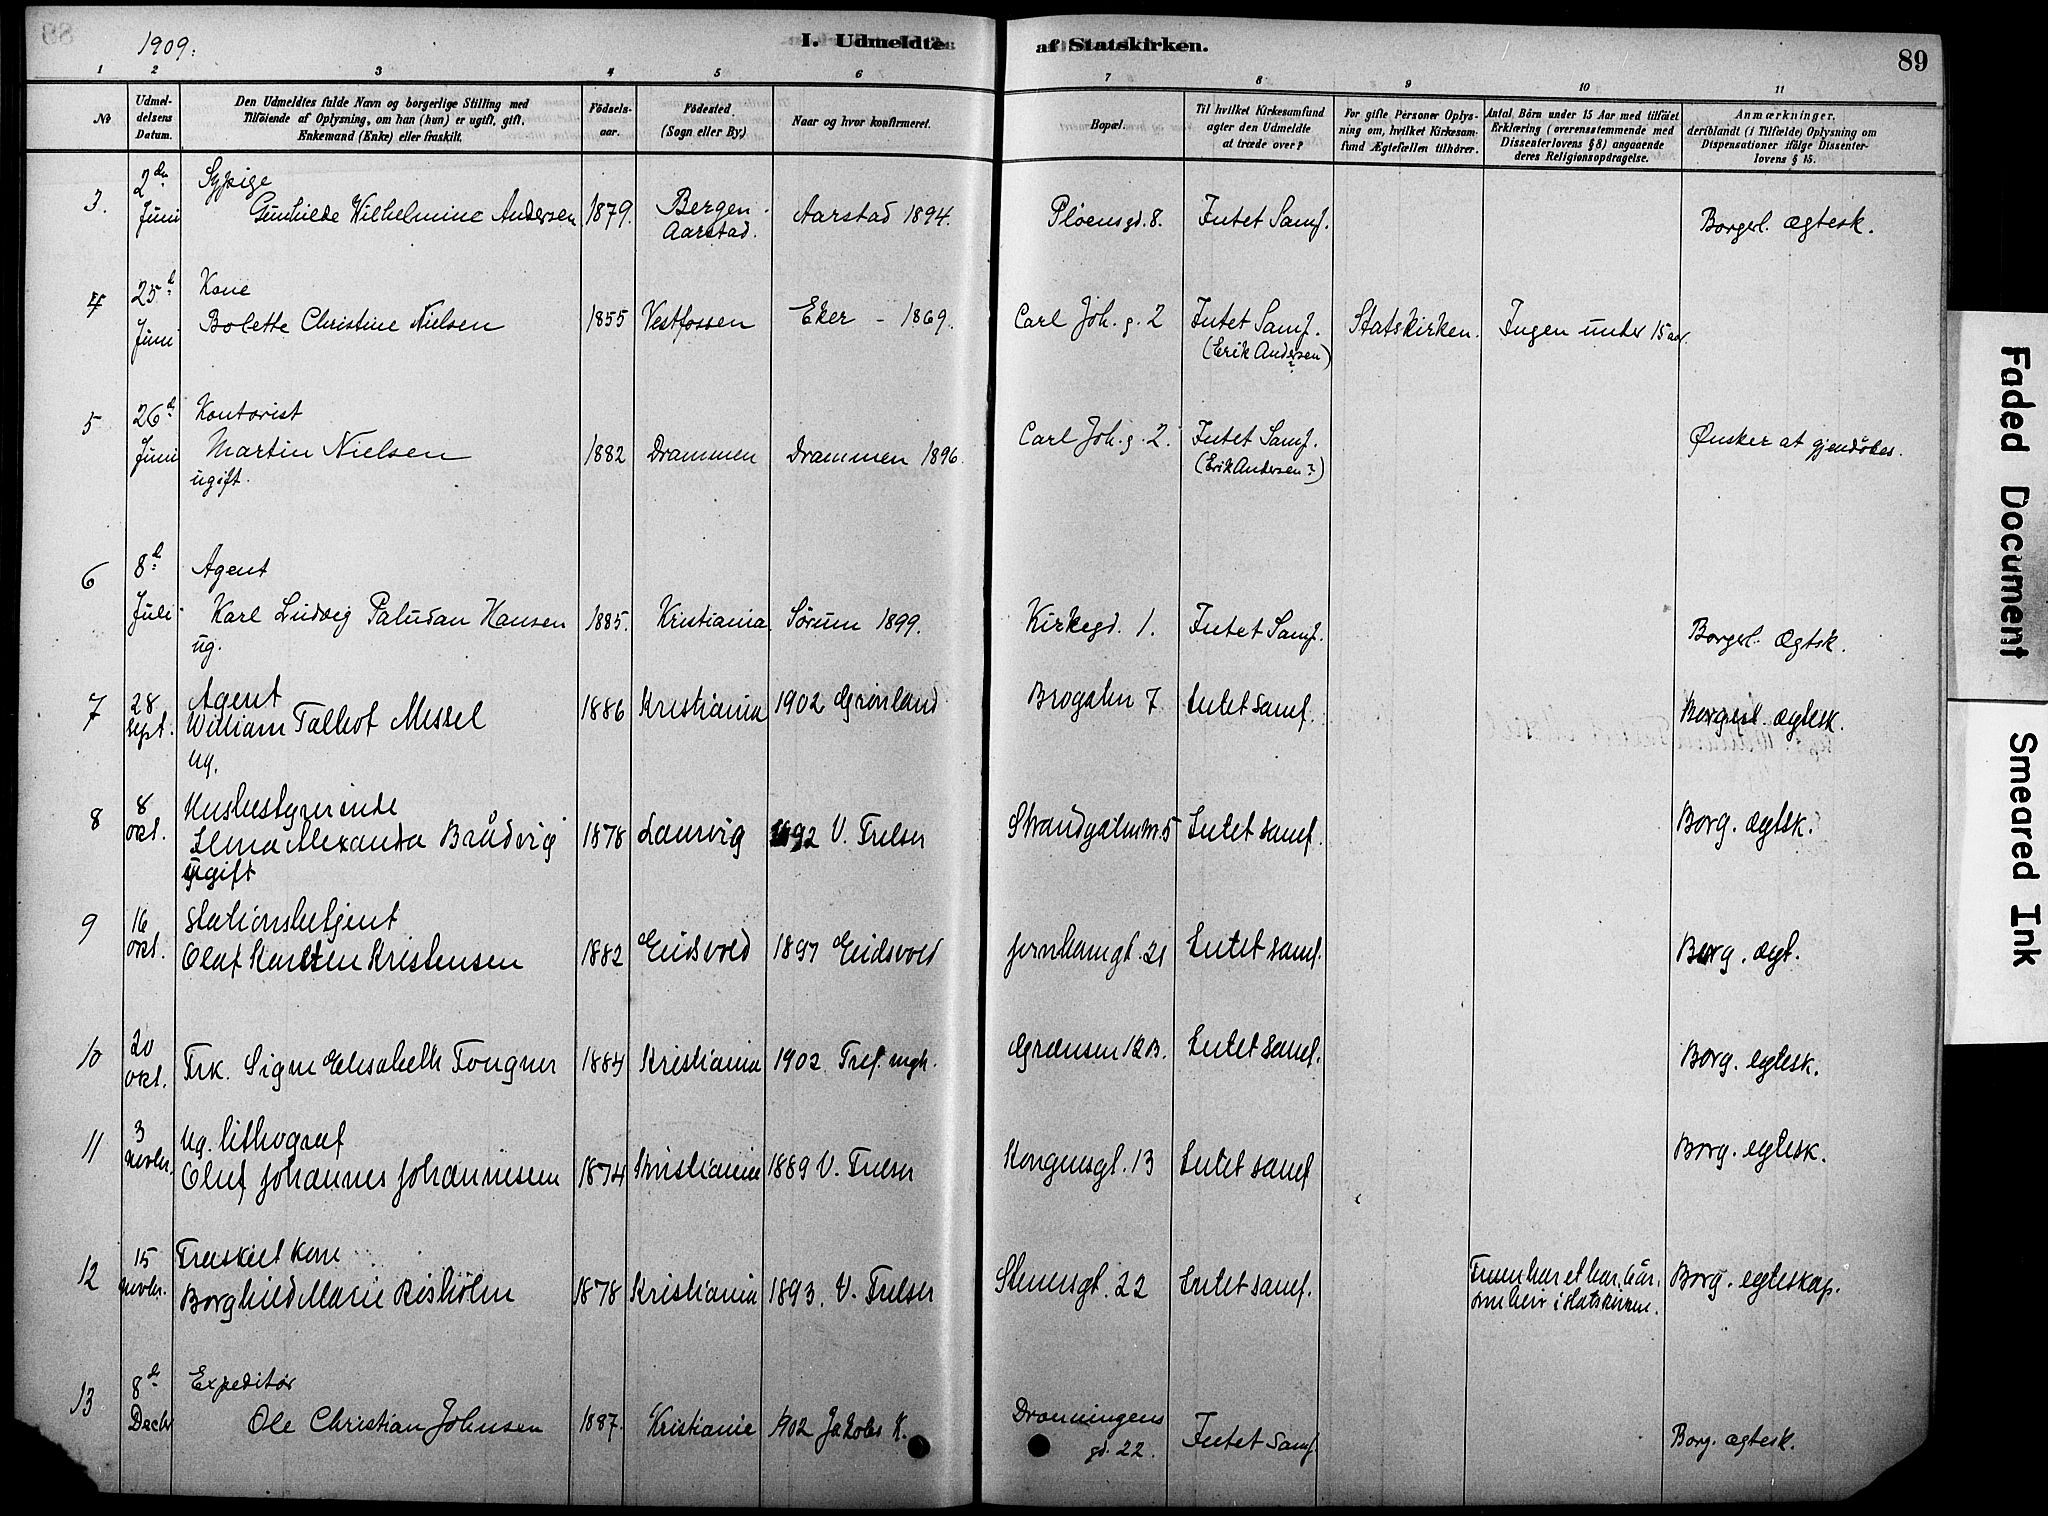 1909.
I. Udmeldte af Statskirken.
89
1 2 3 4 5 6 7 8 9 10 11
No
Udmel-
delsens
Datum.
Den Udmeldtes fulde Navn og borgerlige Stilling med
Tilføiende af Oplysning, om han (hun) er ugift, gift,
Enkemand (Enke) eller fraskilt.
Födsels-
aar.
Födested
(Sogn eller By.)
Naar og hvor konfirmeret.
Bopæl.
Til hvilket Kirkesamfund
agter den Udmeldte
at træde over?
For gifte Personer Oplys-
ning om, hvilket Kirkesam-
fund Ægtefællen tilhörer.
Antal Börn under 15 Aar med tilföiet
Erklæring (overensstemmende med
Dissenterlovens § 8) angaaende
deres Religionsopdragelse.
Anmærkninger,
deriblandt (i Tilfælde) Oplysning om
Dispensationer ifölge Dissenter-
lovens § 15.
3. 2den Juni
Sypige
Gunhilde Wilhelmine Andersen 1879. Bergen Aarstad. Aarstad 1894. Pløensgd. 8. Intet Samf. Borgerl. Ægtesk.
4 25d Juni
Kone
Bolette Christine Nielsen 1855 Vestfossen Eker - 1869. Carl Joh. g. 2 Intet Samf. (Erik Andersen?) Statskirken. Ingen under 15 aar.
5 26d Juni
Kontorist
Martin Nielsen 1882 Drammen Drammen 1896. Carl Joh. g. 2. Intet Samf. (Erik Andersen?) Ønsker at gjendøbes.
ugift.
6 8d Juli
Agent
Karl Ludvig Paludan Hansen 1885. Kristiania Sørum 1899. Kirkegd. 1. Intet Samf. Borgerl. Ægtsk.
ug.
7 28 sept.
Agent
William Talbot Messel 1886 Kristiania 1902 Grønland Brogaten 7 Intet samf. Borgerl. ægtesk.
ug.
8 8 okt.
Husbestyrerinde
Alexandra Brudvig 1878 Laurvig 1892 V. Frelser Strandgaten 5 Intet samf. Borg. ægtsk.
ugift
9 16 okt.
Stationsbetjent
Olaf Karsten Kristensen 1882 Eidsvold 1897 Eidsvold Jernbanegt. 21 Intet samf. Borg. ægt.
10 20 okt.
Frk. Signe Elisabeth Fougner 1884 Kristiania 1902 Tref. mgh. Grænsen 12 B. Intet samf. Borg. egtesk.
11 3 novbr.
Ug. lithograf
Olaf Johannes Johannessen 1874 Kristiania 1889 V. Frelser Kongensgt. 13 Intet samf. Borg. egtesk.
12 15 novbr.
Fraskilt kone
Borghild Marie Risholm 1878 Kristiania 1893. V. Frelser Stensgt. 22 Intet samf. i statskirken. Borg. egteskap.
13 8de Decbr
Expeditør
Ole Christian Johnsen 1887. Kristiania 1902 Jakobs K. Dronningens gd. 22. Intet Samf. Borg. ægtesk.
Faded Document
Smeared Ink